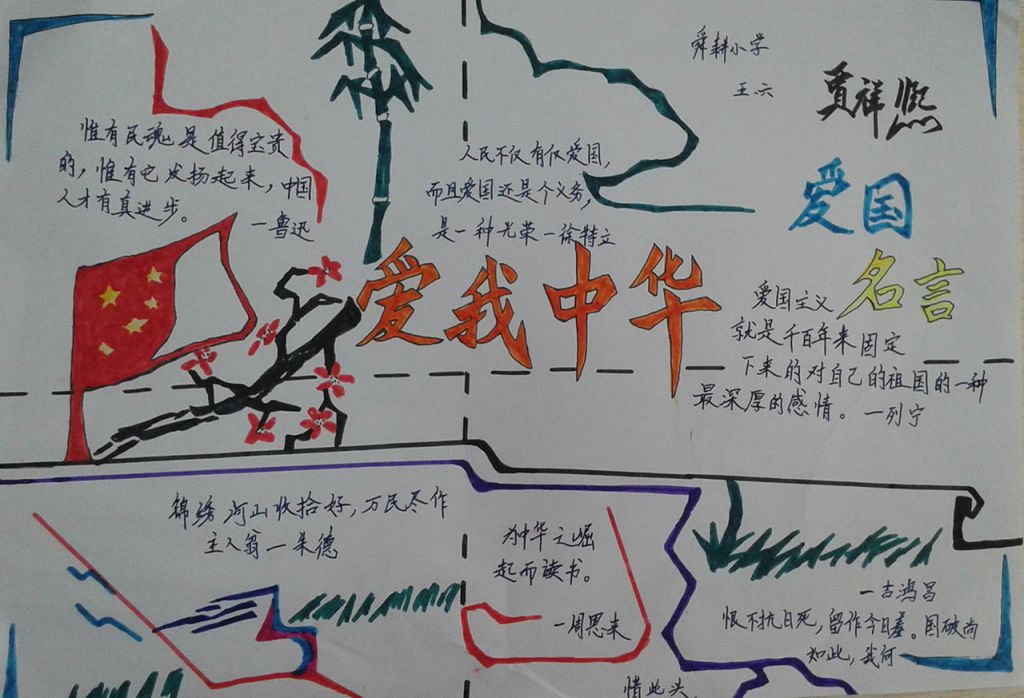 舜耕小学
五.六
贾祥熙
惟有民魂是值得宝贵
的，惟有它发扬起来，中国
人才有真进步。
一鲁迅
人民不仅有仅爱国，
而且爱国还是个义务，
是一种光荣一徐特立
爱国
名言
爱我中华
爱国主义
就是千百年来固定
下来的对自己的祖国的一种
最深厚的感情。一列宁
锦绣河山收拾好，万民尽作
主人翁一朱德
为中华之崛
起而读书。
一周恩来
一吉鸿昌
恨不抗日死，留作今日羞。国破尚
如此，我何
惜此头